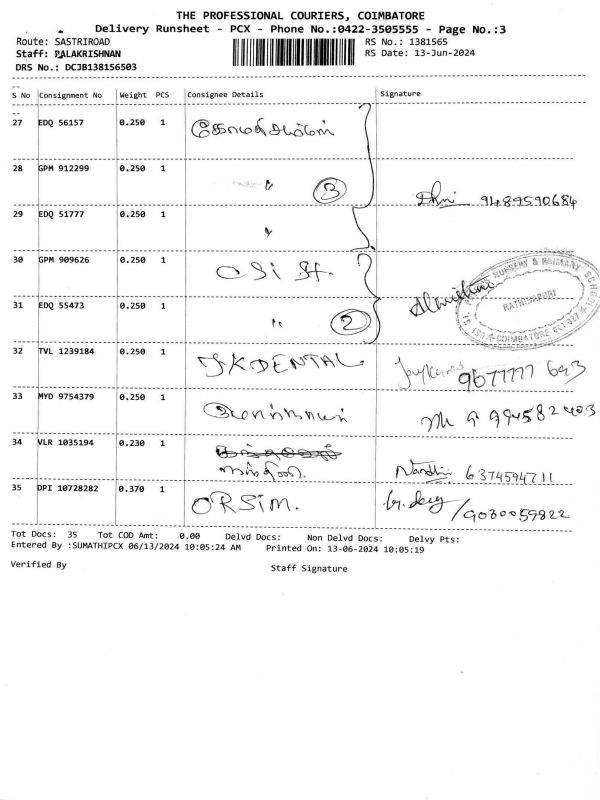 THE PROFESSIONAL COURIERS, COIMBATORE
Delivery Runsheet - PCX - Phone No.:0422-3505555 - Page No.:3
Route: SASTRIROAD
RS No.: 1381565
Staff: PALAKRISHNAN
RS Date: 13-Jun-2024
DRS No.: DCJB138156503
S No Consignment No Weight PCS Consignee Details Signature
27 EDQ 56157 0.250 1
28 GPM 912299 0.250 1 " 3 9489590684
29 EDQ 51777 0.250 1 "
30 GPM 909626 0.250 1 C S i
31 EDQ 55473 0.250 1 " 2
NURSERY & PRIMARY SCHOOL
RATHINAPURI
COIMBATORE 641 027
32 TVL 1239184 0.250 1 J K DENTAL 9677777 693
33 MYD 9754379 0.250 1 994582403
34 VLR 1035194 0.230 1 நந்தினி Nandhi 6374594711
35 DPI 10728282 0.370 1 ORSiM. /9080059822
Tot Docs: 35 Tot COD Amt: 0.00 Delvd Docs: Non Delvd Docs: Delvy Pts:
Entered By :SUMATHIPCX 06/13/2024 10:05:24 AM Printed On: 13-06-2024 10:05:19
Verified By
Staff Signature